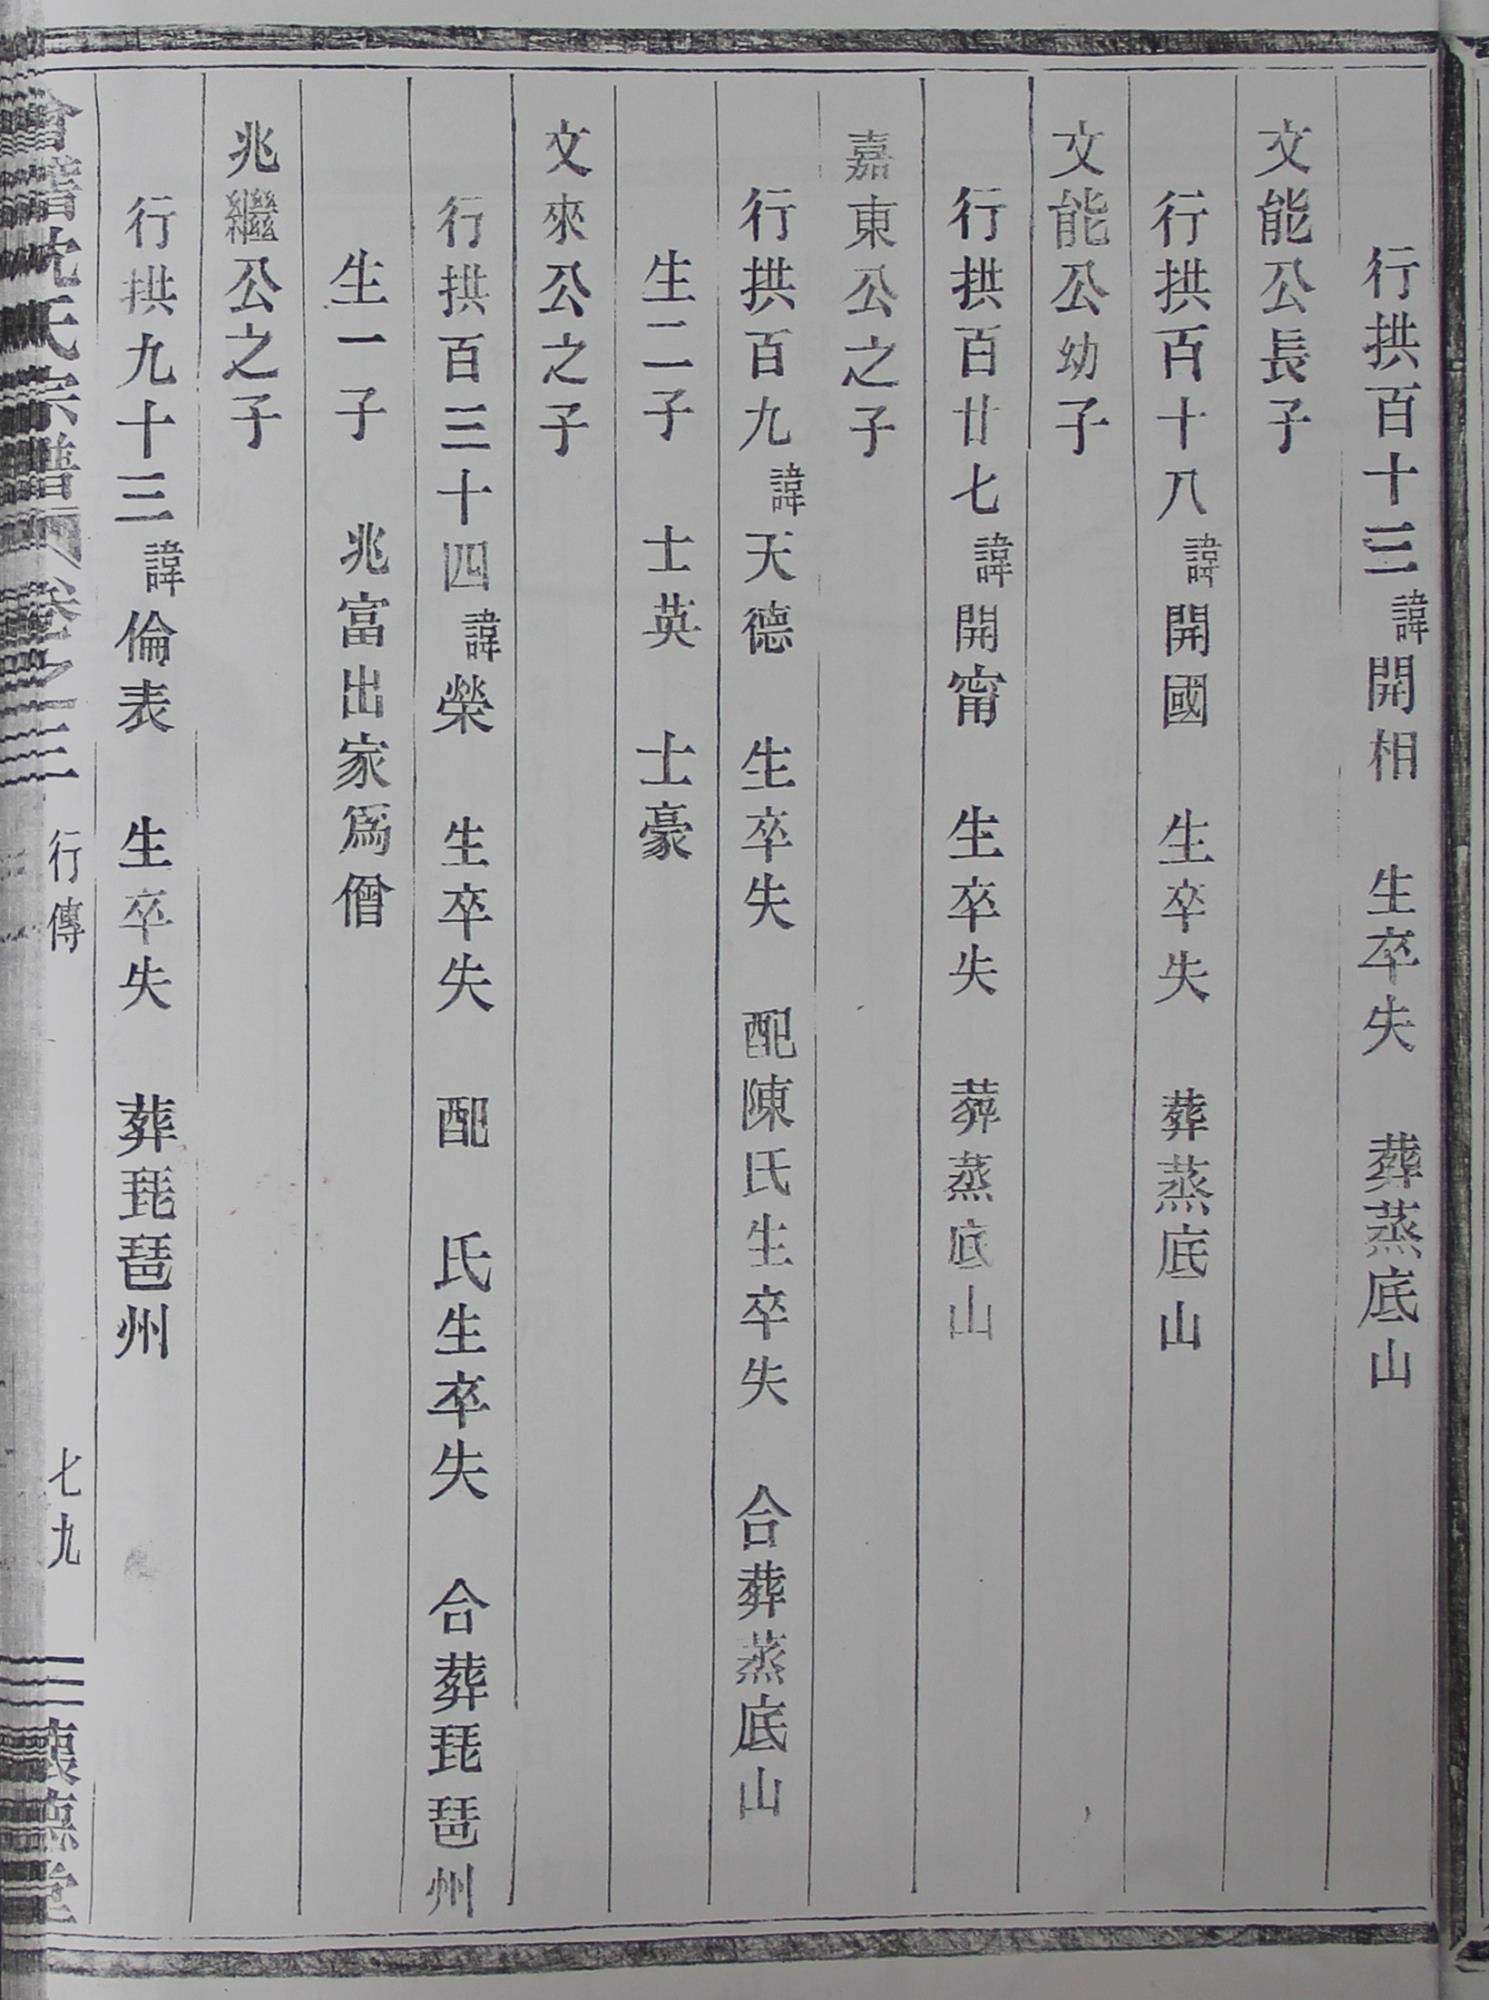 行拱百十三諱開相　生卒失　葬蒸底山
文能公長子
行拱百十八諱開國　生卒失　葬蒸底山
文能公幼子
行拱百廿七諱開甯　生卒失　葬蒸底山
嘉東公之子
行拱百九諱天德　生卒失　配陳氏生卒失　合葬蒸底山
生二子　士英　士豪
文來公之子
行拱百三十四諱榮　生卒失　配　氏生卒失　合葬琵琶州
生一子　兆富出家爲僧
兆繼公之子
行拱九十三諱倫表　生卒失　葬琵琶州
會稽沈氏宗譜　卷之三　行傳　七九　懷德堂